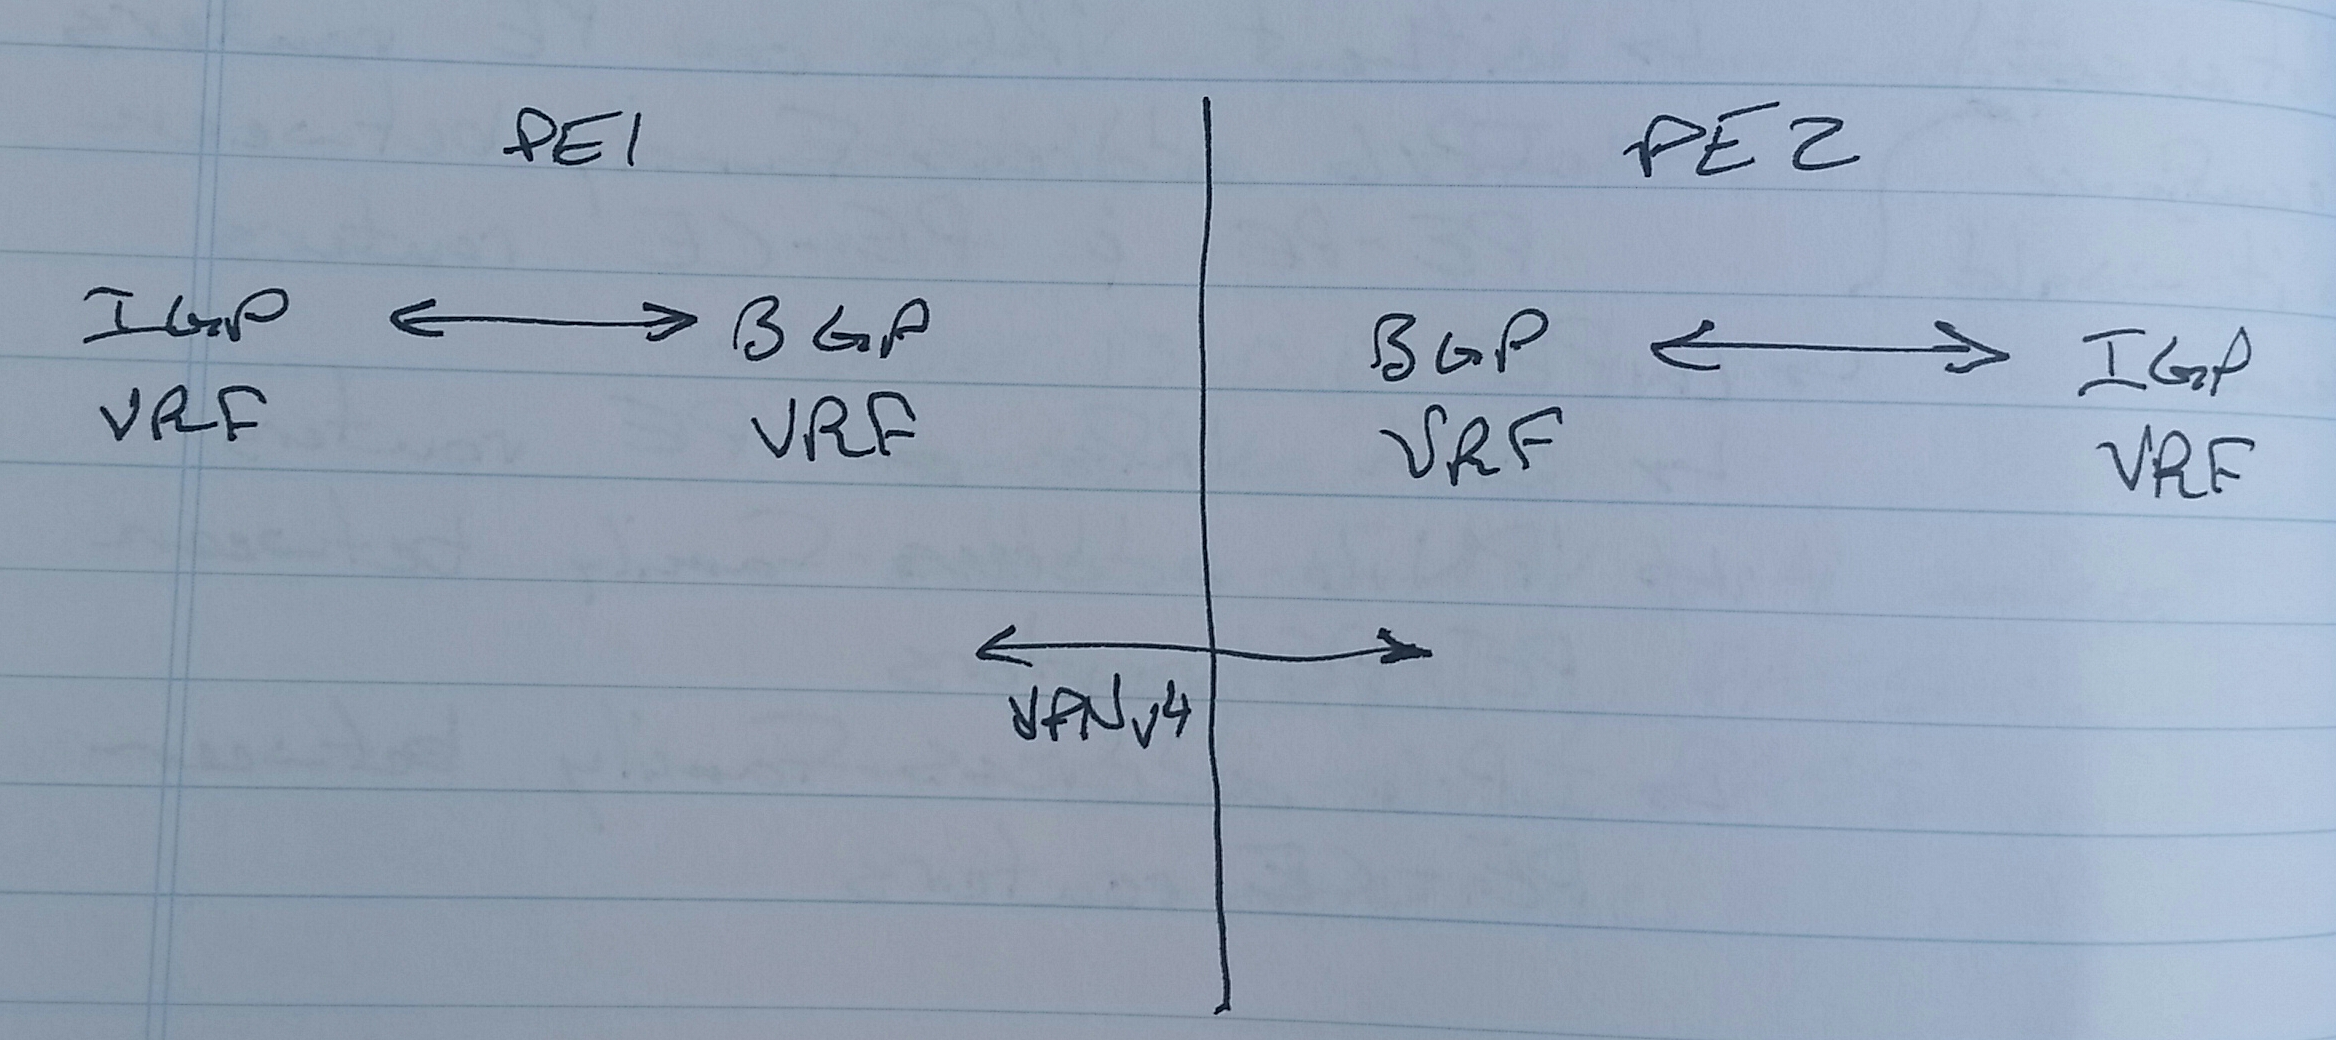 PE1
PE2
IGP
VRF
BGP
VRF
BGP
VRF
IGP
VRF
VPNv4